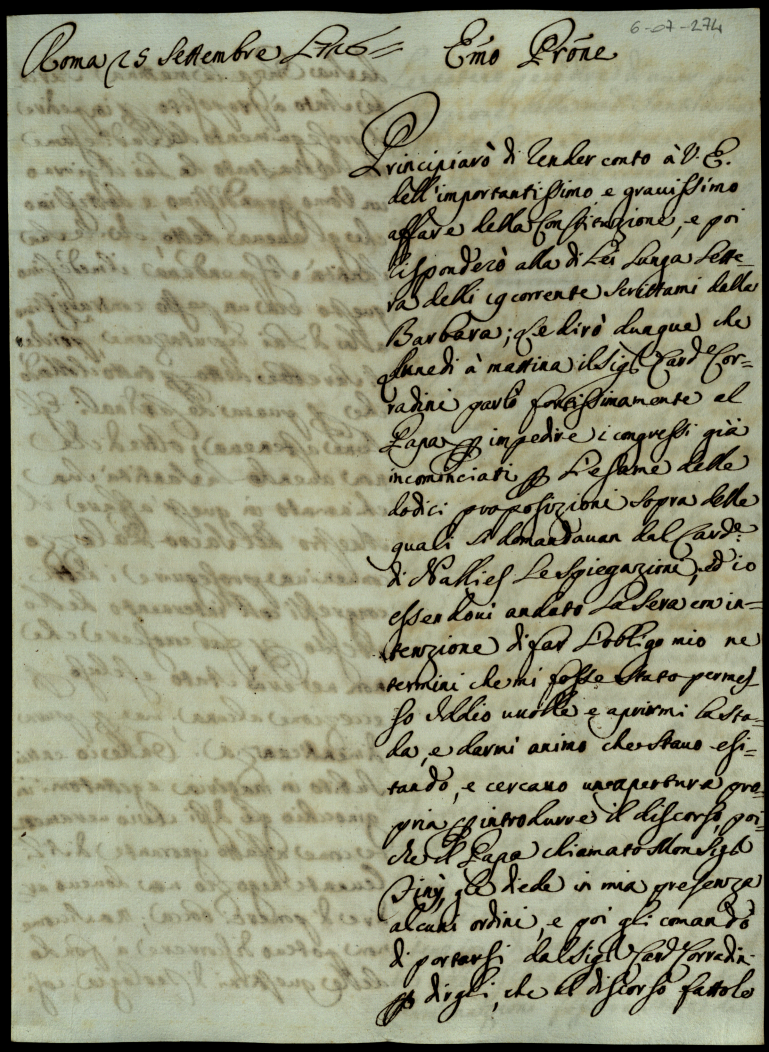 6-07-274
Roma 25 Settembre 1726= Emo Prōne
Principiarò di render conto à V. E.
dell'importantissimo, e grauissimo
affare della Constituzione, e poi
risponderò alla di Lei lunga lette-
ra delli 19 corrente scrittami dalla
Barbara; Le dirò dunque che
lunedi à mattina il Sigr Carde Cor=
radini parlò fortissimamente al
Papa p impedire i congressi già
incominciati p l'esame delle
dodici proposizioni sopra delle
quali si domandauan dal Carde
di Nailles le spiegazioni, ed io
essendoui andato la sera con in=
tenzione di far l'obligo mio ne
termini che mi fosse stato permes-
so Iddio uuolle e aprirmi la stra-
da, e darmi animo che stauo esi-
tando, e cercauo un'apertura pro-
pria p introdurre il discorso, poi-
che il Papa chiamato Monsigr
Finÿ, gli diede in mia presenza
alcuni ordini, e poi gli comandò
di portarsi dal Sigr Card Corradini
p dirgli, che il discorso fattole